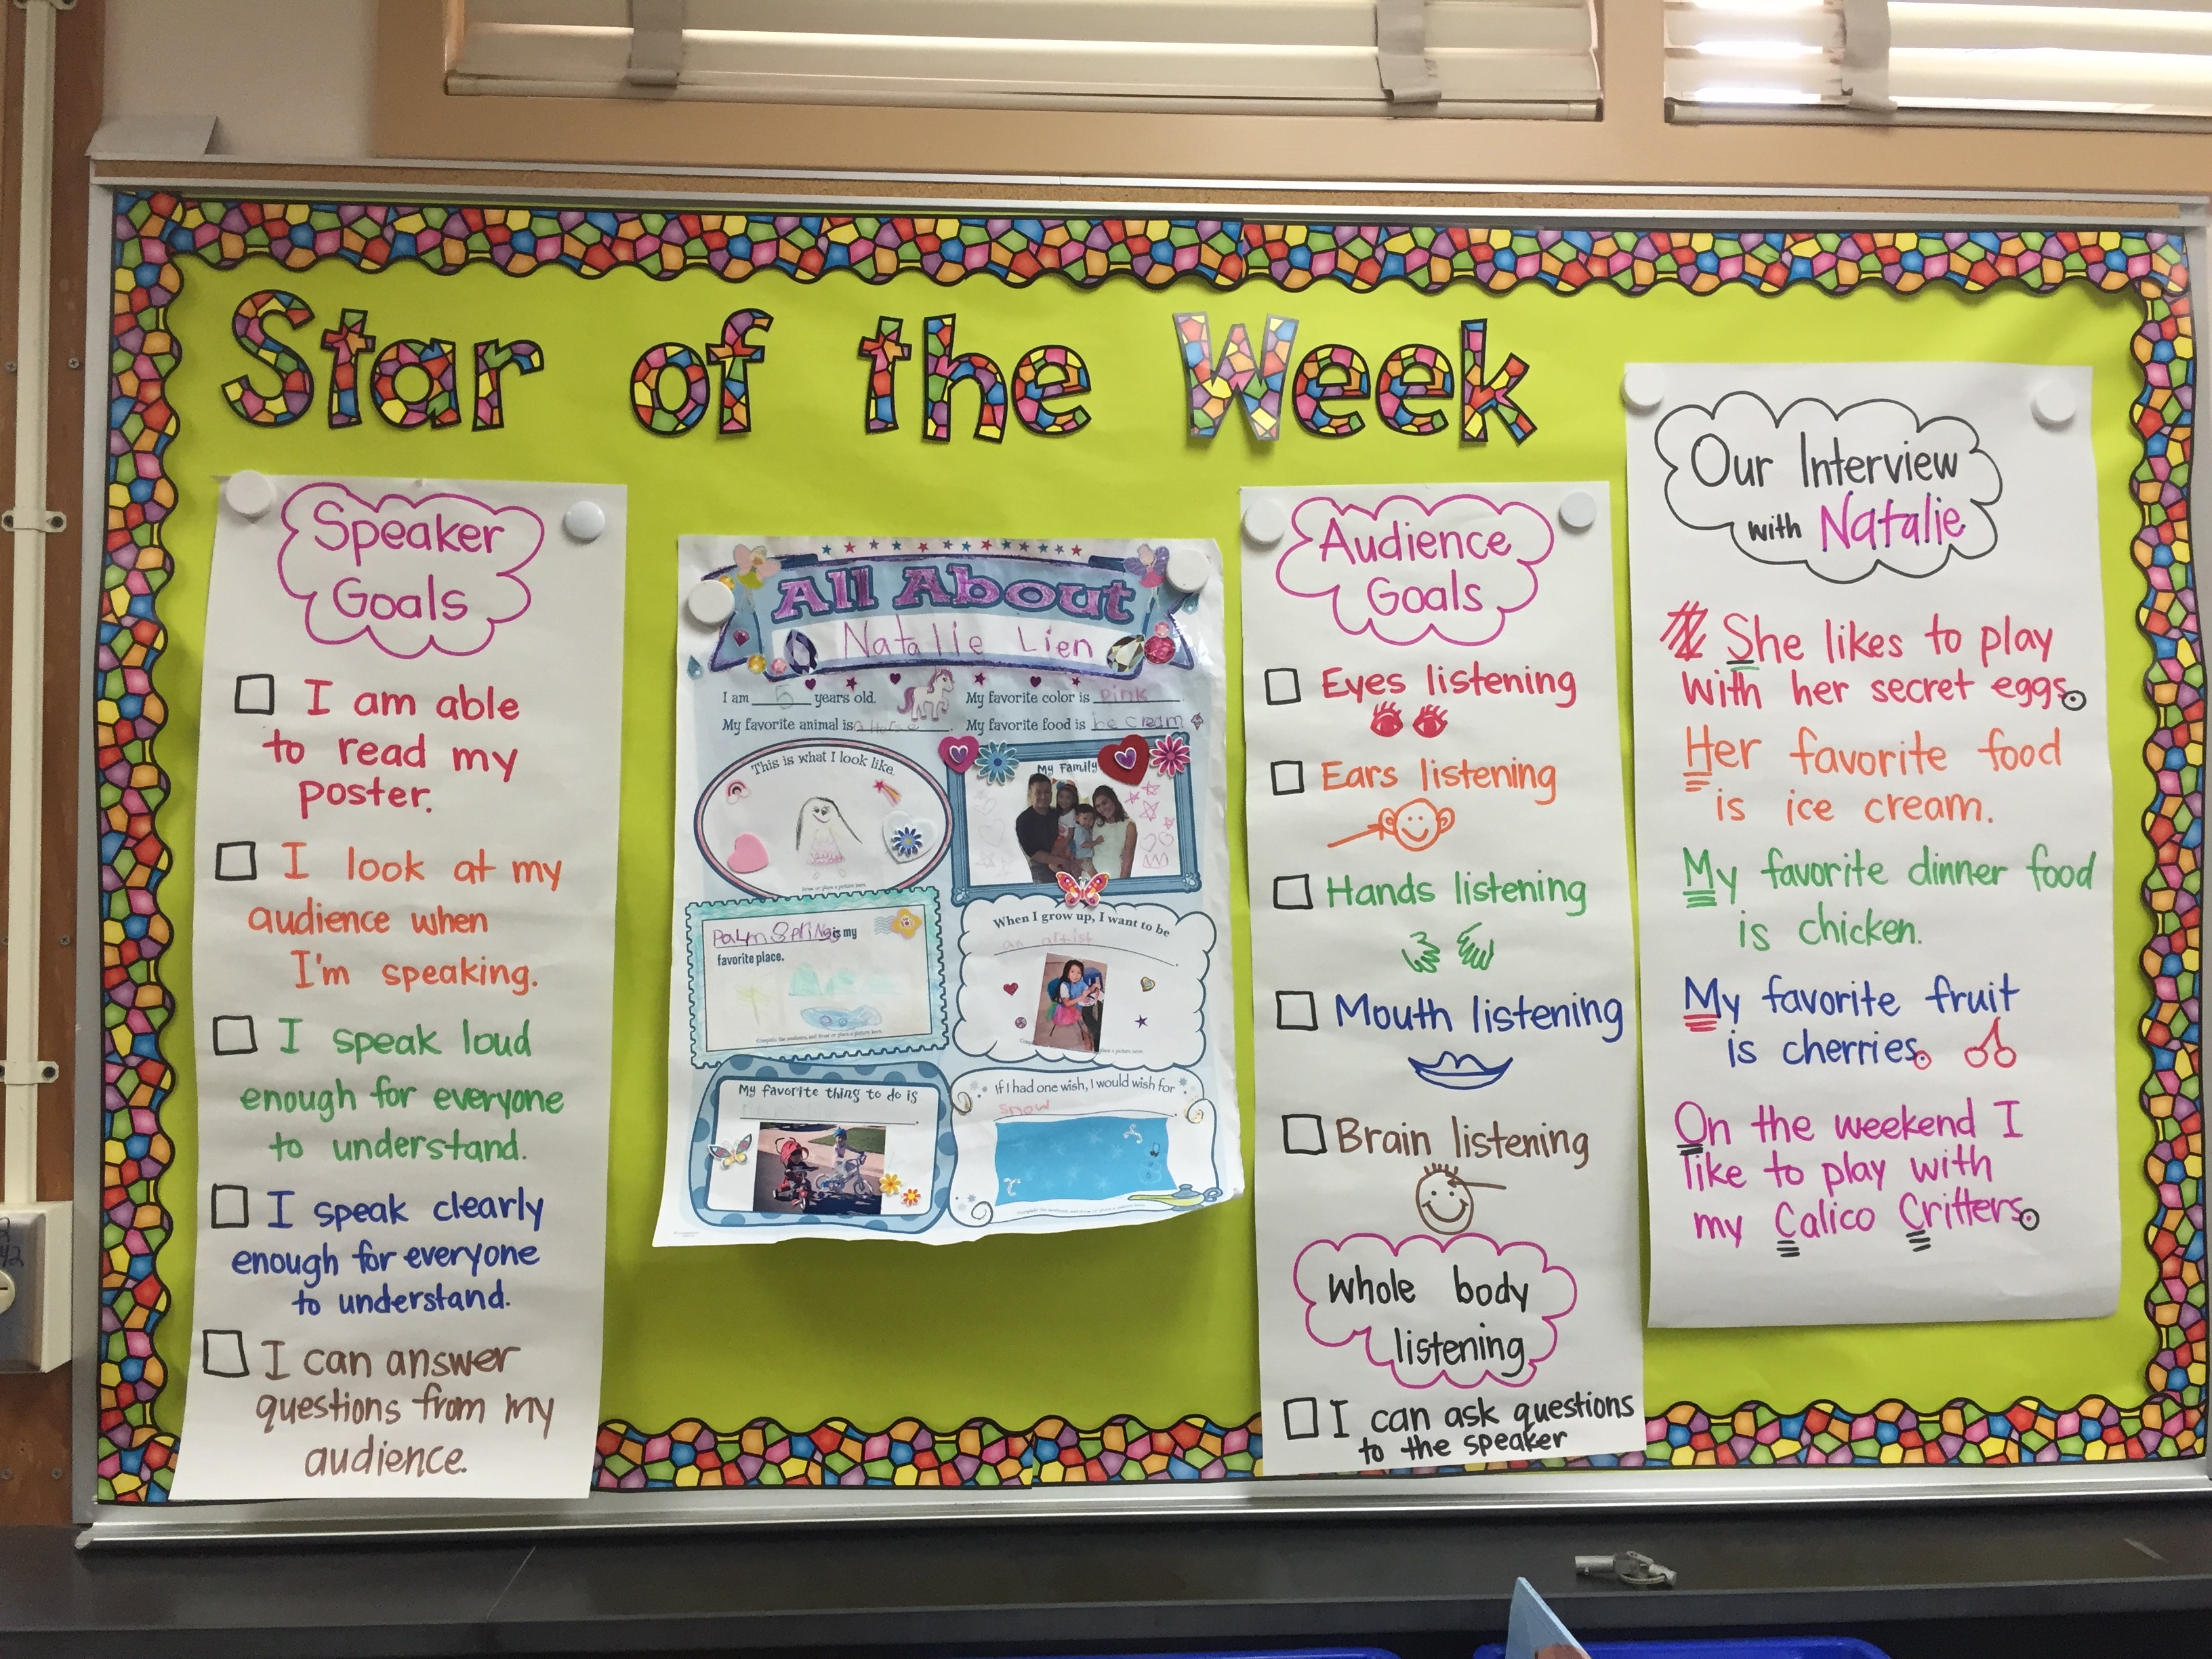 Star of the Week
Speaker
Goals
I am able
to read my
poster.
I look at my
audience when
I'm speaking.
I speak loud
enough for everyone
to understand.
I speak clearly
enough for everyone
to understand.
I can answer
questions from my
audience.
All About
Natalie Lien
I am 5 years old.
My favorite color is pink
My favorite animal is a horse
My favorite food is ice cream
This is what I look like.
My Family
Palm Springs is my
favorite place.
When I grow up, I want to be
an artist
My favorite thing to do is
If I had one wish, I would wish for
snow
Audience
Goals
Eyes listening
Ears listening
Hands listening
Mouth listening
Brain listening
Whole body
listening
I can ask questions
to the speaker
Our Interview
with Natalie
She likes to play
with her secret eggs.
Her favorite food
is ice cream.
My favorite dinner food
is chicken.
My favorite fruit
is cherries.
On the weekend I
like to play with
my Calico Critters.